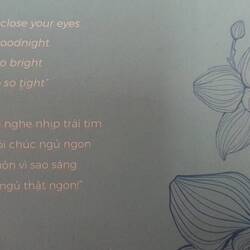 close your eyes
oodnight
o bright
so tight"
nghe nhịp trái tim
ôi chúc ngủ ngon
ôn vì sao sáng
ngủ thật ngon!"